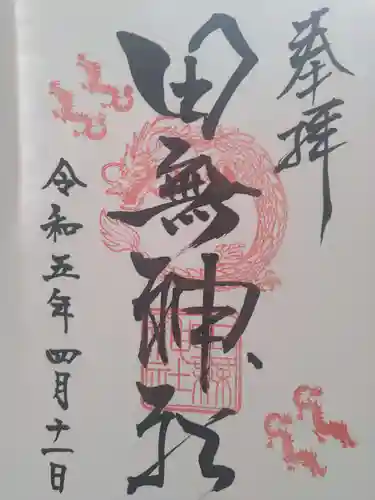 奉拝
田無神社
令和五年四月十一日